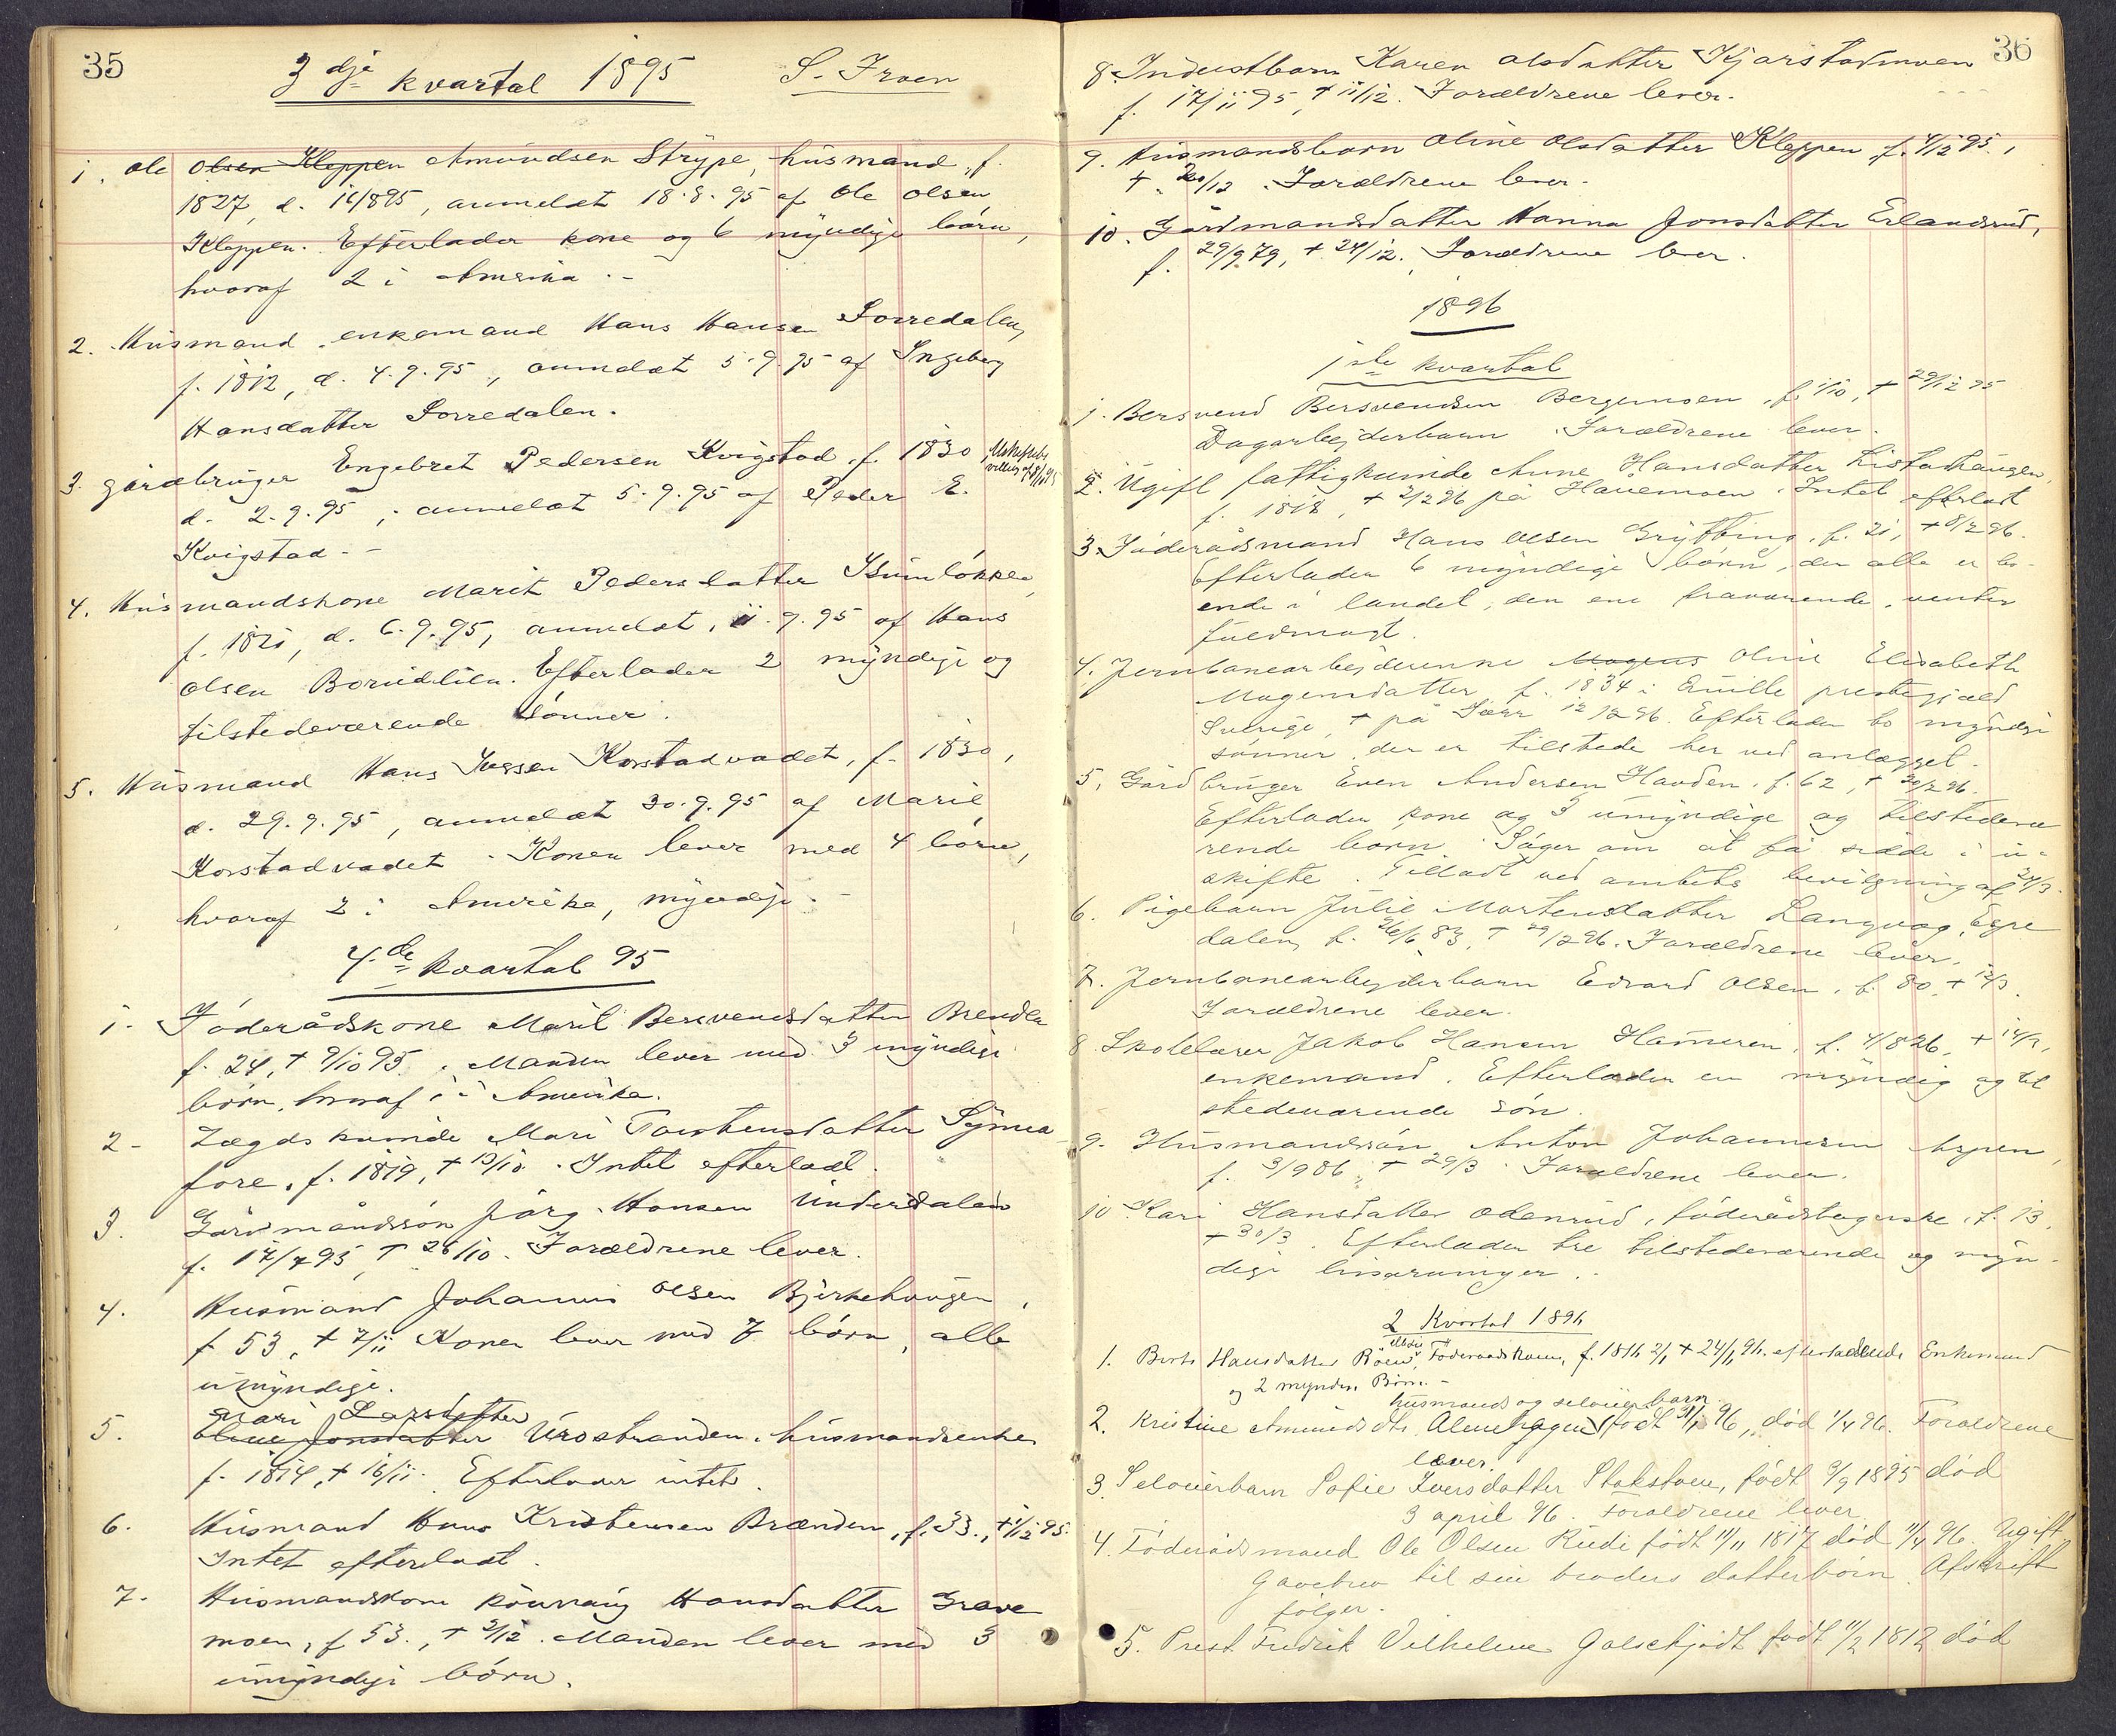 35
3dje kvartal 1895 S. Froen
1. Ole Olsen Kleppen Amundsen Strype, husmand, f.
1827, d. 14/895, anmeldt 18.8.95 af Ole Olsen
Kleppen. Efterlader kone og 6 myndige børn,
hvoraf 2 i Amerika.-
2. Husmand, enkemand Hans Hansen Sorredalen,
f. 1812, d. 4.9.95, anmeldt 5.9.95 af Ingeborg
Hansdatter Sorredalen.
3. Gårdbruger Engebret Pedersen Kvigstad, f. 1830,
d. 2.9.95, anmeldt 5.9.95 af Peder E.
Kvigstad.-
4. Husmandskone Marit Pedersdatter Isumløkken,
f. 1821, d. 6.9.95, anmeldt 11.9.95 af Hans
Olsen Borudlien. Efterlader 2 myndige og
tilstedeværende sønner.
5. Husmand Hans Iversen Korstadvadet, f. 1830,
d. 29.9.95, anmeldt 30.9.95 af Marie
Korstadvadet. Konen lever med 4 børn,
hvoraf 2 i Amerika, myndige.-
4.de kvartal 95
1. Føderådskone Marit Bersvendsdatter Brenden
f. 24, + 9/10 95. Manden lever med 3 myndige
børn, hvoraf 1 i Amerika.
2- Lægdskvinde Mari Torstensdatter
fore, f. 1819, + 13/10. Intet efterladt.
3. Gårdmandssøn Jørg. Hansen Underdalen
f. 17/7 95, + 26/10. Forældrene lever.
4. Husmand Johannes Olsen Bjerkehaugen,
f 53, + 7/11 Konen lever med 7 børn, alle
umyndige.
Mari Larsdatter
5. Oline Jonsdatter Urostranden, husmandsenke
f. 1814, + 16/11. Efterlader intet.
6. Husmand Hans Kristensen Brænden, f. 33, + 1/12 95.
Intet efterladt.
7. Husmandskone Rønnaug Hansdatter Grave
moen, f 53, + 2/12. Manden lever med 3
umyndige børn.
36
8. Inderstbarn Karen Olsdatter Kjørstadmoen
f. 17/11 95, + 11/12. Forældrene lever.
9. Husmandsbarn Oline Olsdatter Kleppen f. 4/12 95,
+ 20/12. Forældrene lever.
10. Gårdmandsdatter Hanna Jonsdatter Erlandsrud,
f. 29/9 79, + 24/12. Forældrene lever.
1896
1ste kvartal
1. Bersvend Bersvendsen Bergumoen, f. 1/10, + 29/12 95
Dagarbejderbarn. Forældrene lever.
2. Ugift fattigkvinde Anne Hansdatter Listadhaugen,
f. 1818, + 2/2 96 på Hauemoen. Intet efterladt
3. Føderådsmand Hans Olsen Grytting, f. 21, + 8/2 96.
Efterlader 6 myndige børn, der alle er bo-
ende i landet, den ene fraværende, venter
fuldmagt.
4. Jernbanearbejderenke Mogens Oline Elisabeth
Mogensdatter, f. 1834 i prestegjæld
Sverige, + på 12/2 96. Efterlader to myndige
sønner, der er tilstede her ved anlægget.
5. Gårdbruger Even Andersen Havden, f. 62, + 20/2 96.
Efterlader kone og 3 umyndige og tilstedevæ
rende børn. Søger om at få sidde i u-
skifte. Tilladt ved amtets bevilgning af 24/3.
6. Pigebarn Julie Mortensdatter Langvag, Espe
dalen, f. 26/6 83, + 29/2 96. Forældrene lever.
7. Jernbanearbejderbarn Edvard Olsen, f. 80, + 12/3.
Forældrene lever.
8 Skolelærer Jakob Hansen Hameren, f. 4/8 26, + 14/3,
enkemand. Efterlader en myndig og til
stedeværende søn.
9. Husmandssøn Anton Johannesen Aspen,
f. 3/9 86, + 29/3. Forældrene lever.
10 Kari Hansdatter Odenrud, føderådstagerske, f. 13,
+ 30/3. Efterlader tre tilstedeværende og myn-
dige livsarvinger.
2 Kvartal 1896
1. Berte Hansdatter Roen, Føderaadskone, f. 1816 2/1 + 24/1 96. efterladende Enkemand
og 2 myndige Børn.-
husmands og selveierbarn
2. Kristine Amundsdtr. Almehagen født 31/1 96, død 1/4 96. Forældrene
lever.
3. Selveierbarn Sofie Iversdatter Stokstuen, født 9/9 1895 død
3 april 96. Forældrene lever
4. Føderådsmand Ole Olsen Rudi født 11/11 1817 død 11/4 96. Ugift
Gavebrev til sin broders datterbørn. Afskrift
følger.
5. Prest Fredrik Vilhelm Golschjødt født 11/2 1812 død